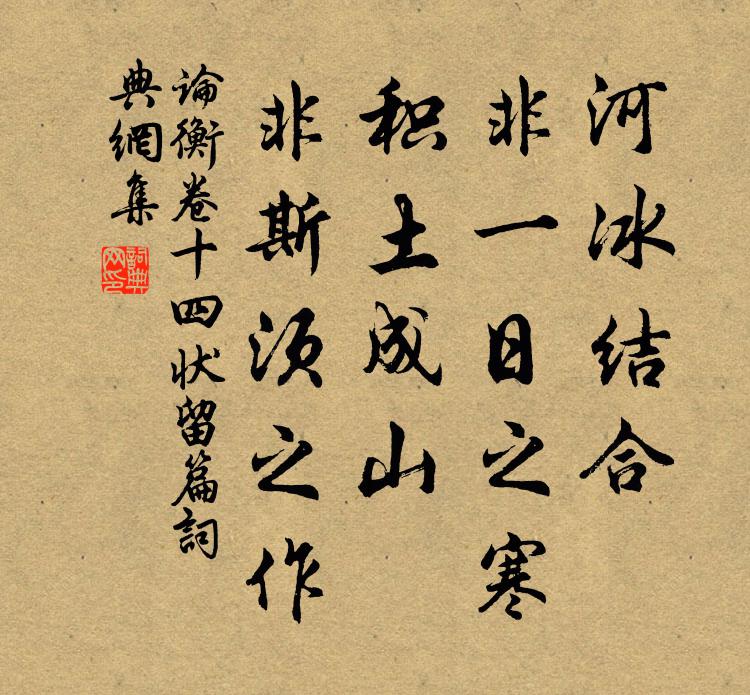 河冰结合
非一日之寒
积土成山
非斯须之作
論衡卷十四状留篇詞
典網集
詞典网印